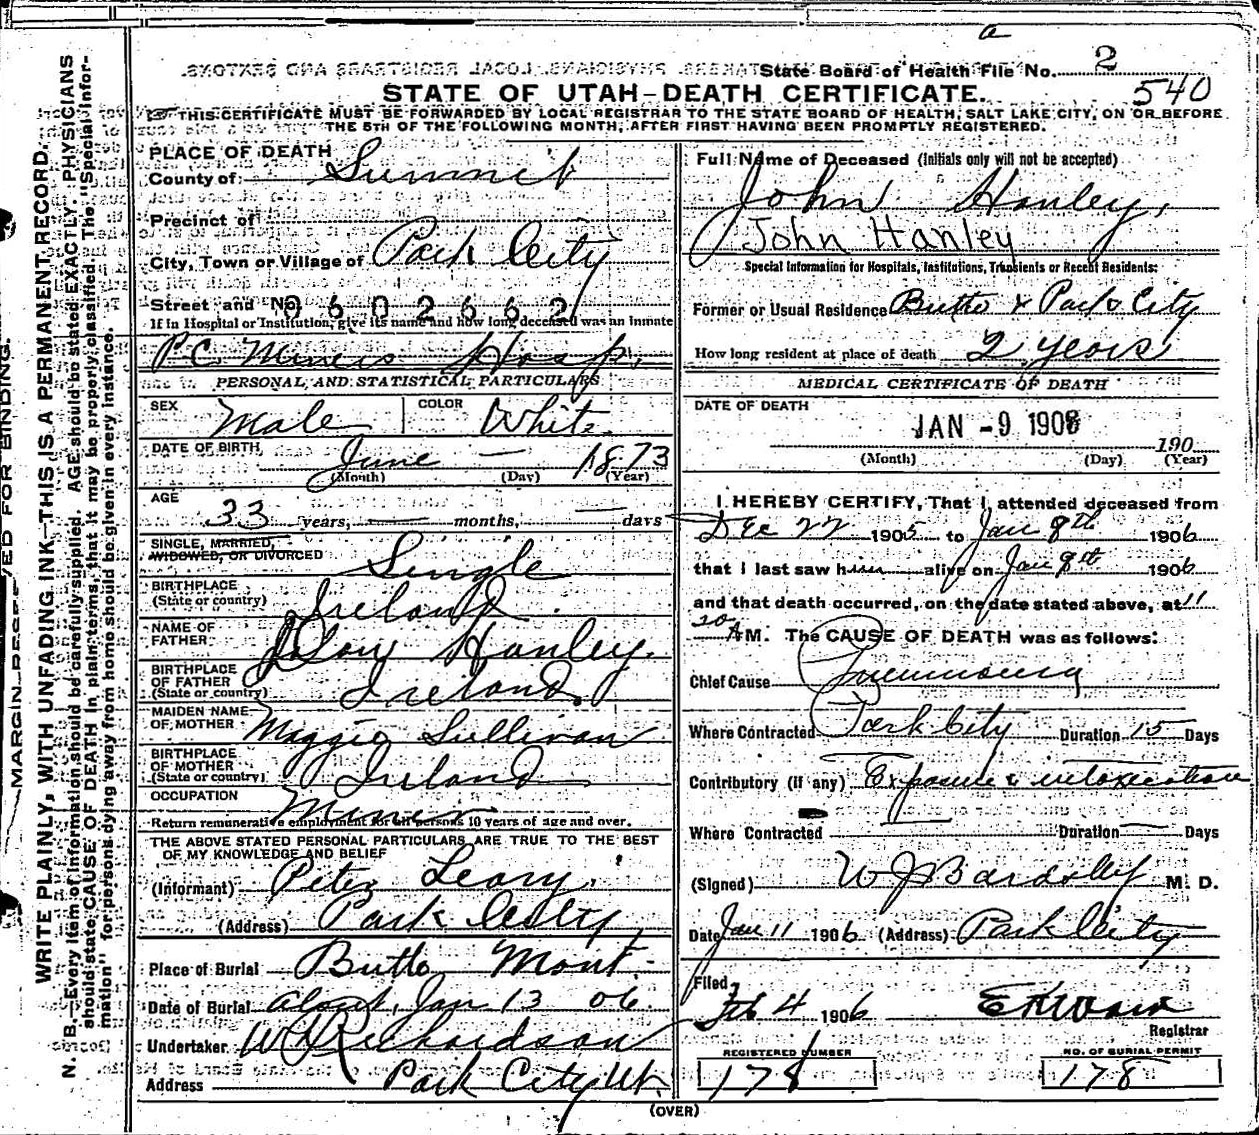 a
State Board of Health File No. 2
540
STATE OF UTAH-DEATH CERTIFICATE.
THIS CERTIFICATE MUST BE FORWARDED BY LOCAL REGISTRAR TO THE STATE BOARD OF HEALTH, SALT LAKE CITY, ON OR BEFORE
THE 5TH OF THE FOLLOWING MONTH, AFTER FIRST HAVING BEEN PROMPTLY REGISTERED.
MARGIN RESERVED FOR BINDING.
WRITE PLAINLY, WITH UNFADING INK—THIS IS A PERMANENT RECORD.
N. B.—Every item of information should be carefully supplied. AGE should be stated EXACTLY. PHYSICIANS
should state CAUSE OF DEATH in plain terms, that it may be properly classified. The "Special Infor-
mation" for persons dying away from home should be given in every instance.
PLACE OF DEATH
County of Summit
Precinct of
City, Town or Village of Park City
Street and No.
0602662
If in Hospital or Institution, give its name and how long deceased was an inmate
P.C. Miners Hosp.
PERSONAL AND STATISTICAL PARTICULARS
SEX Male COLOR White
DATE OF BIRTH June — 1873
(Month) (Day) (Year)
AGE
33 years, — months, — days
SINGLE, MARRIED,
WIDOWED, OR DIVORCED Single
BIRTHPLACE
(State or country) Ireland.
NAME OF
FATHER Hanley.
BIRTHPLACE
OF FATHER
(State or country) Ireland.
MAIDEN NAME
OF MOTHER Maggie Sullivan
BIRTHPLACE
OF MOTHER
(State or country) Ireland
OCCUPATION Miner
Return remunerative employment for all persons 10 years of age and over.
THE ABOVE STATED PERSONAL PARTICULARS ARE TRUE TO THE BEST
OF MY KNOWLEDGE AND BELIEF
(Informant) Peter Leary.
(Address) Park City
Place of Burial Butte Mont.
Date of Burial about Jan 13 06.
Undertaker W Richardson
Address Park City Ut.
Full Name of Deceased (Initials only will not be accepted)
John Hanley,
John Hanley
Special Information for Hospitals, Institutions, Transients or Recent Residents:
Former or Usual Residence Butte & Park City
How long resident at place of death 2 years
MEDICAL CERTIFICATE OF DEATH
DATE OF DEATH
JAN -9 1906
190
(Month) (Day) (Year)
I HEREBY CERTIFY, That I attended deceased from
Dec 22 1905 to Jan 8th 1906
that I last saw him alive on Jan 8th 1906
and that death occurred, on the date stated above, at 11
20 A M. The CAUSE OF DEATH was as follows:
Chief Cause Pneumonia
Where Contracted Park City Duration 15 Days
Contributory (if any) Exposure & intoxication
Where Contracted — Duration — Days
(Signed) W J Bardsley M. D.
Date Jan 11 1906 (Address) Park City
Filed,
Feb 4 1906
Registrar
REGISTERED NUMBER
178
NO. OF BURIAL PERMIT
178
(OVER)